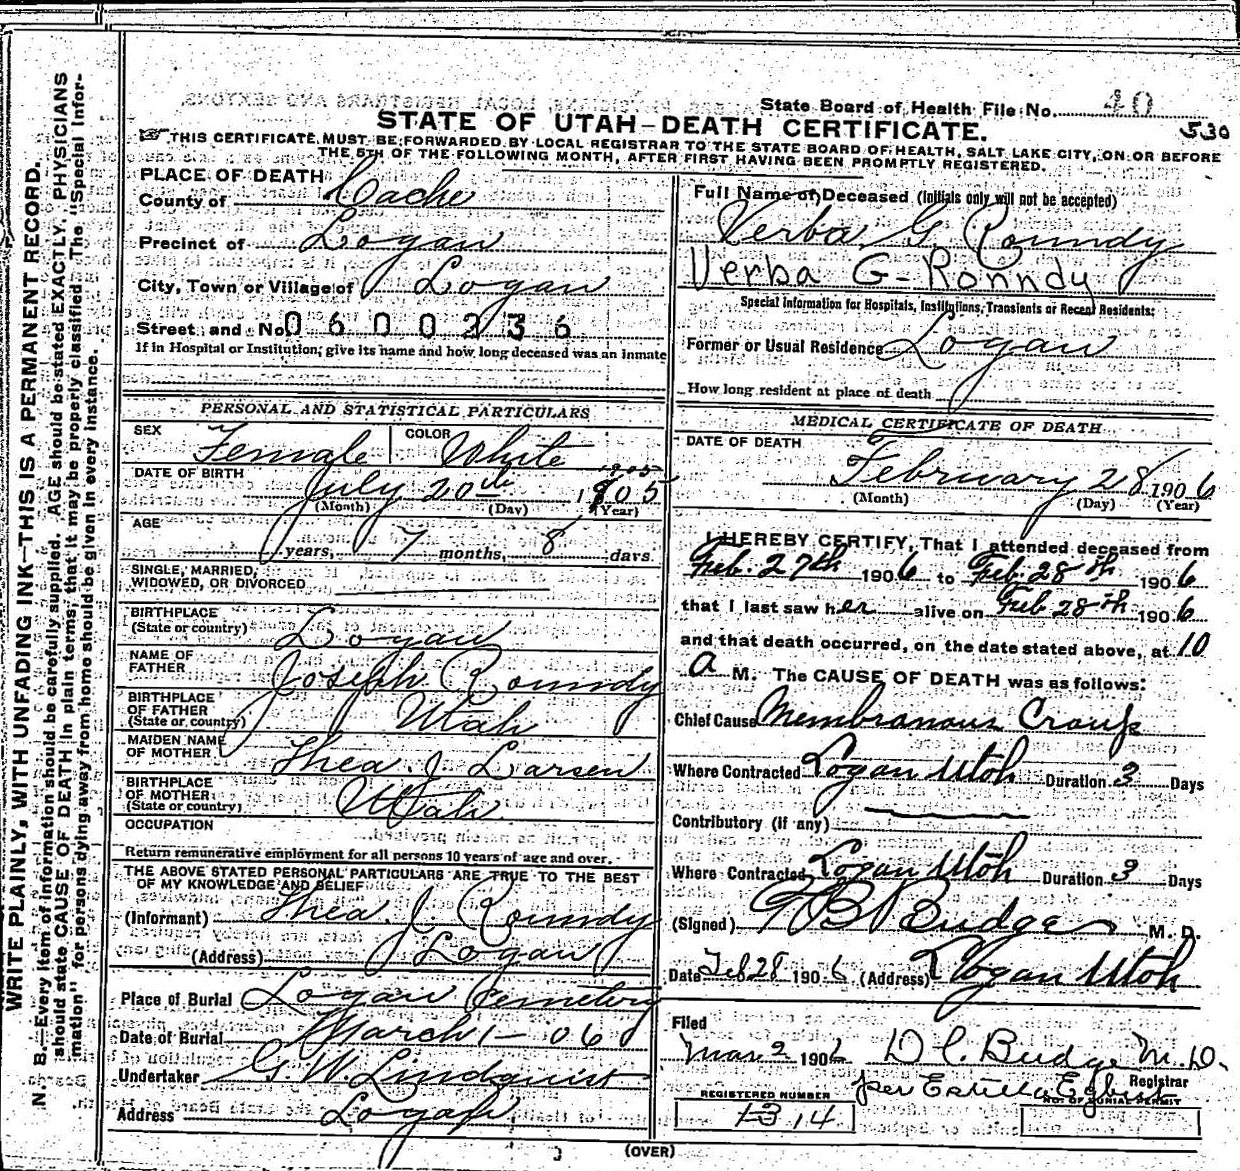 State Board of Health File No. 40
530
STATE OF UTAH—DEATH CERTIFICATE.
THIS CERTIFICATE MUST BE FORWARDED BY LOCAL REGISTRAR TO THE STATE BOARD OF HEALTH, SALT LAKE CITY, ON OR BEFORE
THE 5TH OF THE FOLLOWING MONTH, AFTER FIRST HAVING BEEN PROMPTLY REGISTERED.
WRITE PLAINLY, WITH UNFADING INK—THIS IS A PERMANENT RECORD.
N. B.—Every item of information should be carefully supplied. AGE should be stated EXACTLY. PHYSICIANS
should state CAUSE OF DEATH in plain terms, that it may be properly classified. The "Special Infor-
mation" for persons dying away from home should be given in every instance.
PLACE OF DEATH
County of Cache
Precinct of Logan
City, Town or Village of Logan
Street and No. 0600236
If in Hospital or Institution, give its name and how long deceased was an inmate
PERSONAL AND STATISTICAL PARTICULARS
SEX Female COLOR White
1905
DATE OF BIRTH July 20th 1805
(Month) (Day) (Year)
AGE years, 7 months, 8 days
SINGLE, MARRIED,
WIDOWED, OR DIVORCED
BIRTHPLACE
(State or country) Logan
NAME OF
FATHER Joseph Roundy
BIRTHPLACE
OF FATHER
(State or country) Utah
MAIDEN NAME
OF MOTHER Thea. J Larsen
BIRTHPLACE
OF MOTHER
(State or country) Utah
OCCUPATION
Return remunerative employment for all persons 10 years of age and over.
THE ABOVE STATED PERSONAL PARTICULARS ARE TRUE TO THE BEST
OF MY KNOWLEDGE AND BELIEF
(Informant) Thea. J. Roundy
(Address) Logan
Place of Burial Logan Cemetery
Date of Burial March 1-06
Undertaker G. W. Lindquist
Address Logan
Full Name of Deceased (Initials only will not be accepted)
Verba G Roundy
Verba G-Ronndy
Special Information for Hospitals, Institutions, Transients or Recent Residents:
Former or Usual Residence Logan
How long resident at place of death
MEDICAL CERTIFICATE OF DEATH
DATE OF DEATH
February 28 1906
(Month) (Day) (Year)
I HEREBY CERTIFY, That I attended deceased from
Feb. 27th 1906 to Feb. 28th 1906
that I last saw her alive on Feb 28th 1906
and that death occurred, on the date stated above, at 10
a M. The CAUSE OF DEATH was as follows:
Chief Cause Membranous Croup
Where Contracted Logan Utah Duration 3 Days
Contributory (if any)
Where Contracted Logan Utah Duration 3 Days
(Signed) Budge M. D.
Date Feb 28 1906 (Address) Logan Utah
Filed
Mar 2 1906 D C. Budge M.D.
Registrar
per Estella
REGISTERED NUMBER
1314
NO. OF BURIAL PERMIT
(OVER)